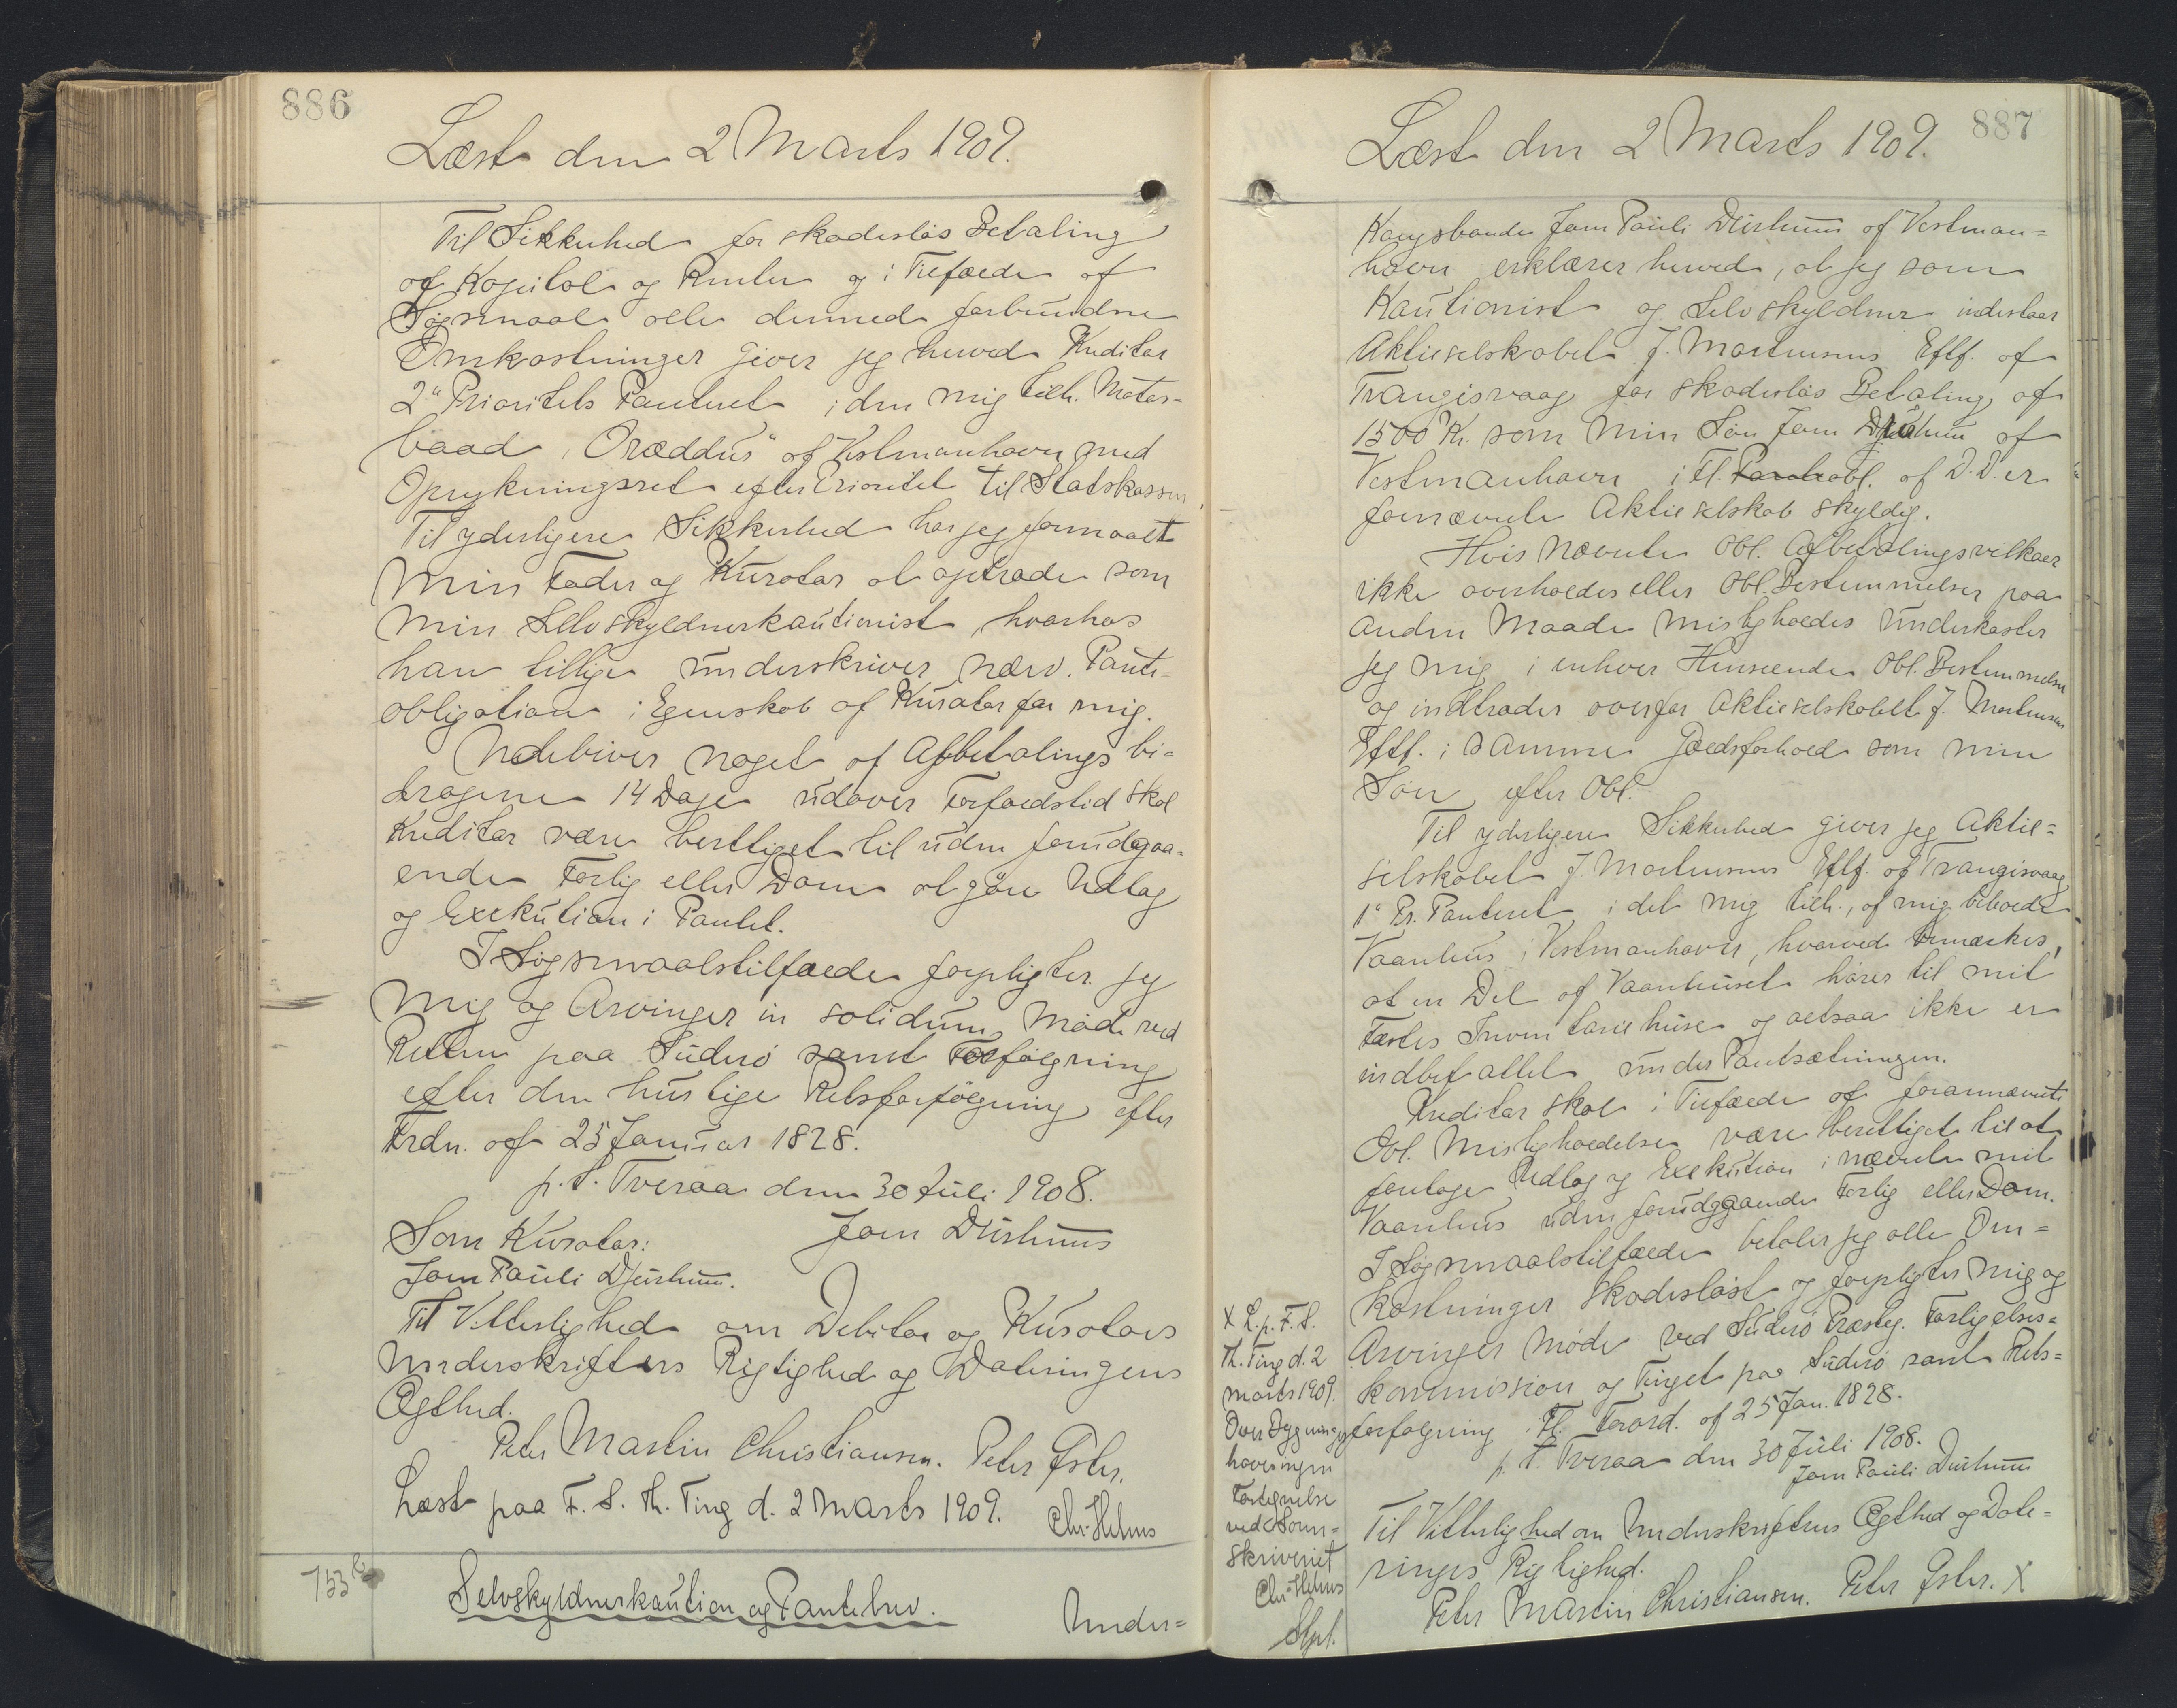 886
Læst den 2 Marts 1909.
Til Sikkerhed for skadesløs Betaling
af Kapital og Renter og i Tilfælde af
Søgsmaal alle dermed forbundne
Omkostninger giver jeg herved Kreditor
2den Prioritets Panteret i den mig tilh. Motor-
baad "Oræddur" af Vestmanhavn med
Oprykningsret efter Prioritet til Statskassen.
Til yderligere Sikkerhed har jeg formaaet
min Fader og Kurator at optræde som
min Selvskyldnerkautionist, hvorhos
han tillige underskriver nærv. Pante-
obligation i Egenskab af Kurator for mig.
Udebliver noget af Afbetalingsbi-
dragene 14 Dage udover Forfaldstid skal
Kreditor være berettiget til uden forudgaa-
ende Forlig eller Dom at gøre Udlæg
og Exekution i Pantet.
I Søgsmaalstilfælde forpligter jeg
mig og Arvinger in solidum, Møde ved
Retten paa Suderø samt Forfølgning
efter den hurtige Retsforfølgning efter
Frdn. af 25 Januar 1828.
p. t. Tveraa den 30 Juli 1908.
Som Kurator: Joen Djurhuus
Joen Pauli Djurhuus.
Til Vitterlighed om Debitor og Kurators
Underskrifters Rigtighed og Dateringens
Ægthed.
Peter Martin Christiansen. Peter Øster.
Læst paa F. S. Th. Ting d. 2 Marts 1909. Chr. Helms
153 b
Selvskyldnerkaution og Pantebrev. Under=
887
Læst den 2 Marts 1909.
Kongsbonde Joen Pauli Djurhuus af Vestman=
havn erklærer herved, at jeg som
Kautionist og Selvskyldner indestaar
Aktieselskabet J. Mortensens Eftf. af
Trangisvaag for skadesløs Betaling af
1500 Kr. som min Søn Joen Djurhuus af
Vestmanhavn i Fl. Panteobl. af D.D. er
fornævnte Aktieselskab skyldig.
Hvis nævnte Obl. Afbetalingsvilkaar
ikke overholdes eller Obl. Bestemmelser paa
anden Maade misligholdes underkaster
jeg mig i enhver Henseende Obl. Bestemmelser
og indtræder overfor Aktieselskabet J. Mortensens
Eftf. i samme Gældsforhold som min
Søn efter Obl.
Til yderligere Sikkerhed giver jeg Aktie=
selskabet J. Mortensens Eftf. af Trangisvaag
1ste Pr. Panteret i det mig tilh., af mig beboede
Vaanhus i Vestmanhavn, hvorved bemærkes,
at en Del af Vaanhuset hører til mit
Fæstes Inventariehuse og altsaa ikke er
indbefattet under Pantsætningen.
Kreditor skal i Tilfælde af forannævnte
Obl. Misligholdelse være berettiget til at
foretage Udlæg og Exekution i nævnte mit
Vaanhus uden forudgaaende Forlig eller Dom.
I Søgsmaalstilfælde betaler jeg alle Om=
kostninger skadesløst og forpligter mig og
Arvinger Møde ved Suderø Præstg. Forligelses=
kommission og Tinget paa Suderø samt Rets=
forfølgning i Fl. Forord. af 25 Jan. 1828.
p. t. Tveraa den 30 Juli 1908.
Joen Pauli Djurhuus
Til Vitterlighed om Underskriftens Ægthed og Date=
ringens Rigtighed.
Peter Martin Christiansen. Peter Øster. X
X L. p. F. S.
Th. Ting d. 2
Marts 1909.
Over Bygningen
haves ingen
Fortegnelse
ved Soren=
skriveriet
Chr. Helms